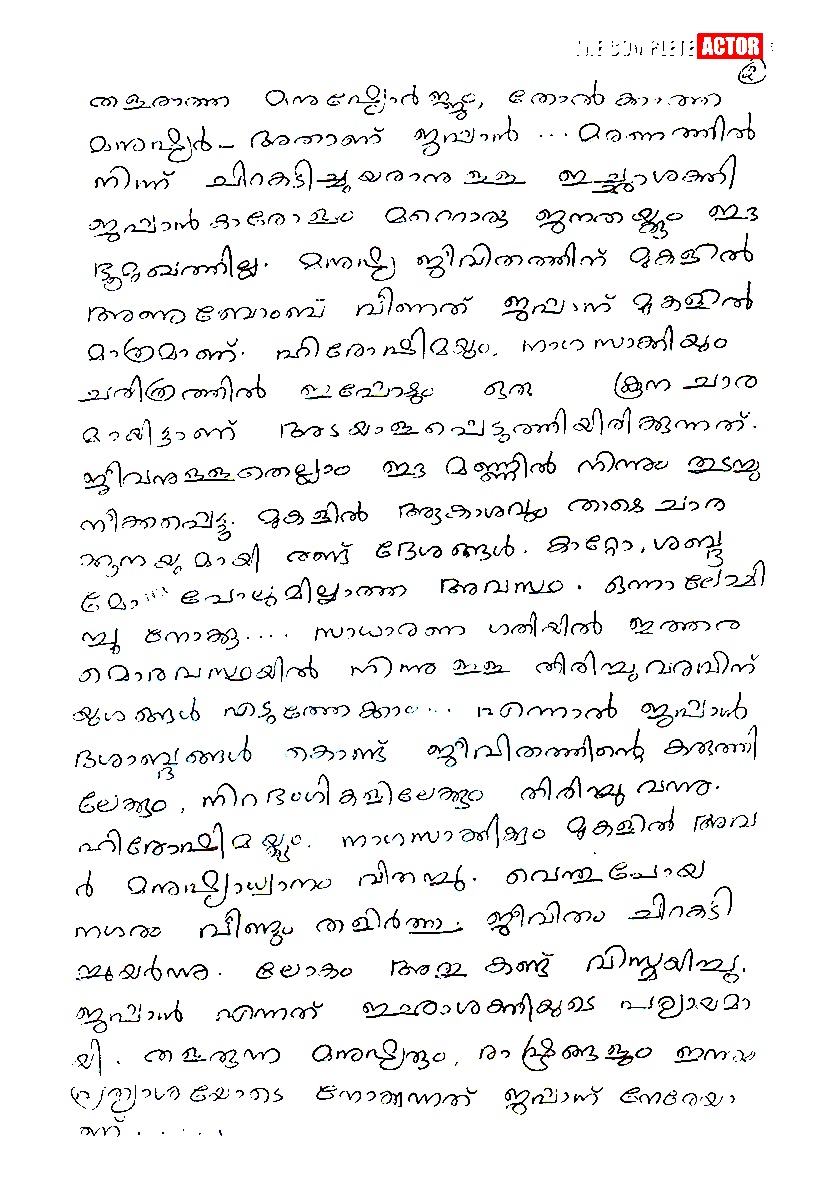 THE COMPLETE ACTOR
തളരാത്ത മനുഷ്യോർജ്ജം, തോൽകാത്ത
മനുഷ്യർ - അതാണ് ജപ്പാൻ ... മരണത്തിൽ
നിന്ന് ചിറകടിച്ചുയരാനുള്ള ഇച്ഛാശക്തി
ജപ്പാൻകാരോളം മറ്റൊരു ജനതയ്ക്കും ഈ
ഭൂമുഖത്തില്ല. മനുഷ്യ ജീവിതത്തിന് മുകളിൽ
അണുബോംബ് വീണത് ജപ്പാന് മുകളിൽ
മാത്രമാണ്. ഹിരോഷിമയും, നാഗസാക്കിയും
ചരിത്രത്തിൽ ഇപ്പോഴും ഒരു കൂന ചാര
മായിട്ടാണ് അടയാളപ്പെടുത്തിയിരിക്കുന്നത്.
ജീവനുള്ളതെല്ലാം ഈ മണ്ണിൽ നിന്നും തുടച്ചു
നീക്കപ്പെട്ടു. മുകളിൽ ആകാശവും താഴെ ചാര
ക്കൂനയുമായി രണ്ട് ദേശങ്ങൾ. കാറ്റോ, ശബ്ദ
മോ പോലുമില്ലാത്ത അവസ്ഥ. ഒന്നാലോചി
ച്ചു നോക്കൂ.... സാധാരണ ഗതിയിൽ ഇത്തര
മൊരവസ്ഥയിൽ നിന്നുള്ള തിരിച്ചുവരവിന്
യുഗങ്ങൾ എടുത്തേക്കാം... എന്നാൽ ജപ്പാൻ
ദശാബ്ദങ്ങൾ കൊണ്ട് ജീവിതത്തിന്റെ കരുത്തി
ലേക്കും, നിറഭംഗികളിലേക്കും തിരിച്ചു വന്നു.
ഹിരോഷിമയ്ക്കും, നാഗസാക്കിക്കും മുകളിൽ അവ
ർ മനുഷ്യാധ്വാനം വിതച്ചു. വെന്തുപോയ
നഗരം വീണ്ടും തളിർത്തു. ജീവിതം ചിറകടി
ച്ചുയർന്നു. ലോകം അത് കണ്ട് വിസ്മയിച്ചു.
ജപ്പാൻ എന്നത് ഇച്ഛാശക്തിയുടെ പര്യായമാ
യി. തളരുന്ന മനുഷ്യരും, രാഷ്ട്രങ്ങളും ഇന്നും
പ്രത്യാശയോടെ നോക്കുന്നത് ജപ്പാന് നേരെയാ
ണ്.....